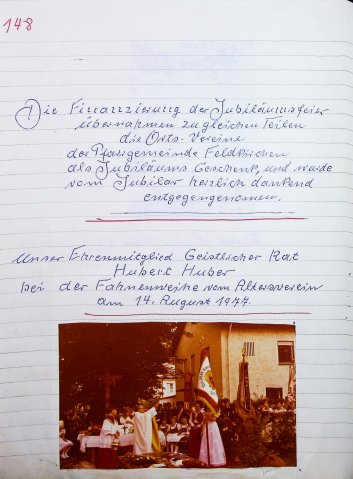 148
Die Finanzierung der Jubiläumsfeier
übernahmen zu gleichen Teilen
die Orts-Vereine
der Pfarrgemeinde Feldkirchen
als Jubiläums Geschenk, und wurde
vom Jubilar herzlich dankend
entgegengenommen.
Unser Ehrenmitglied Geistlicher Rat
Hubert Huber
bei der Fahnenweihe vom Altersverein
am 14. August 1977.